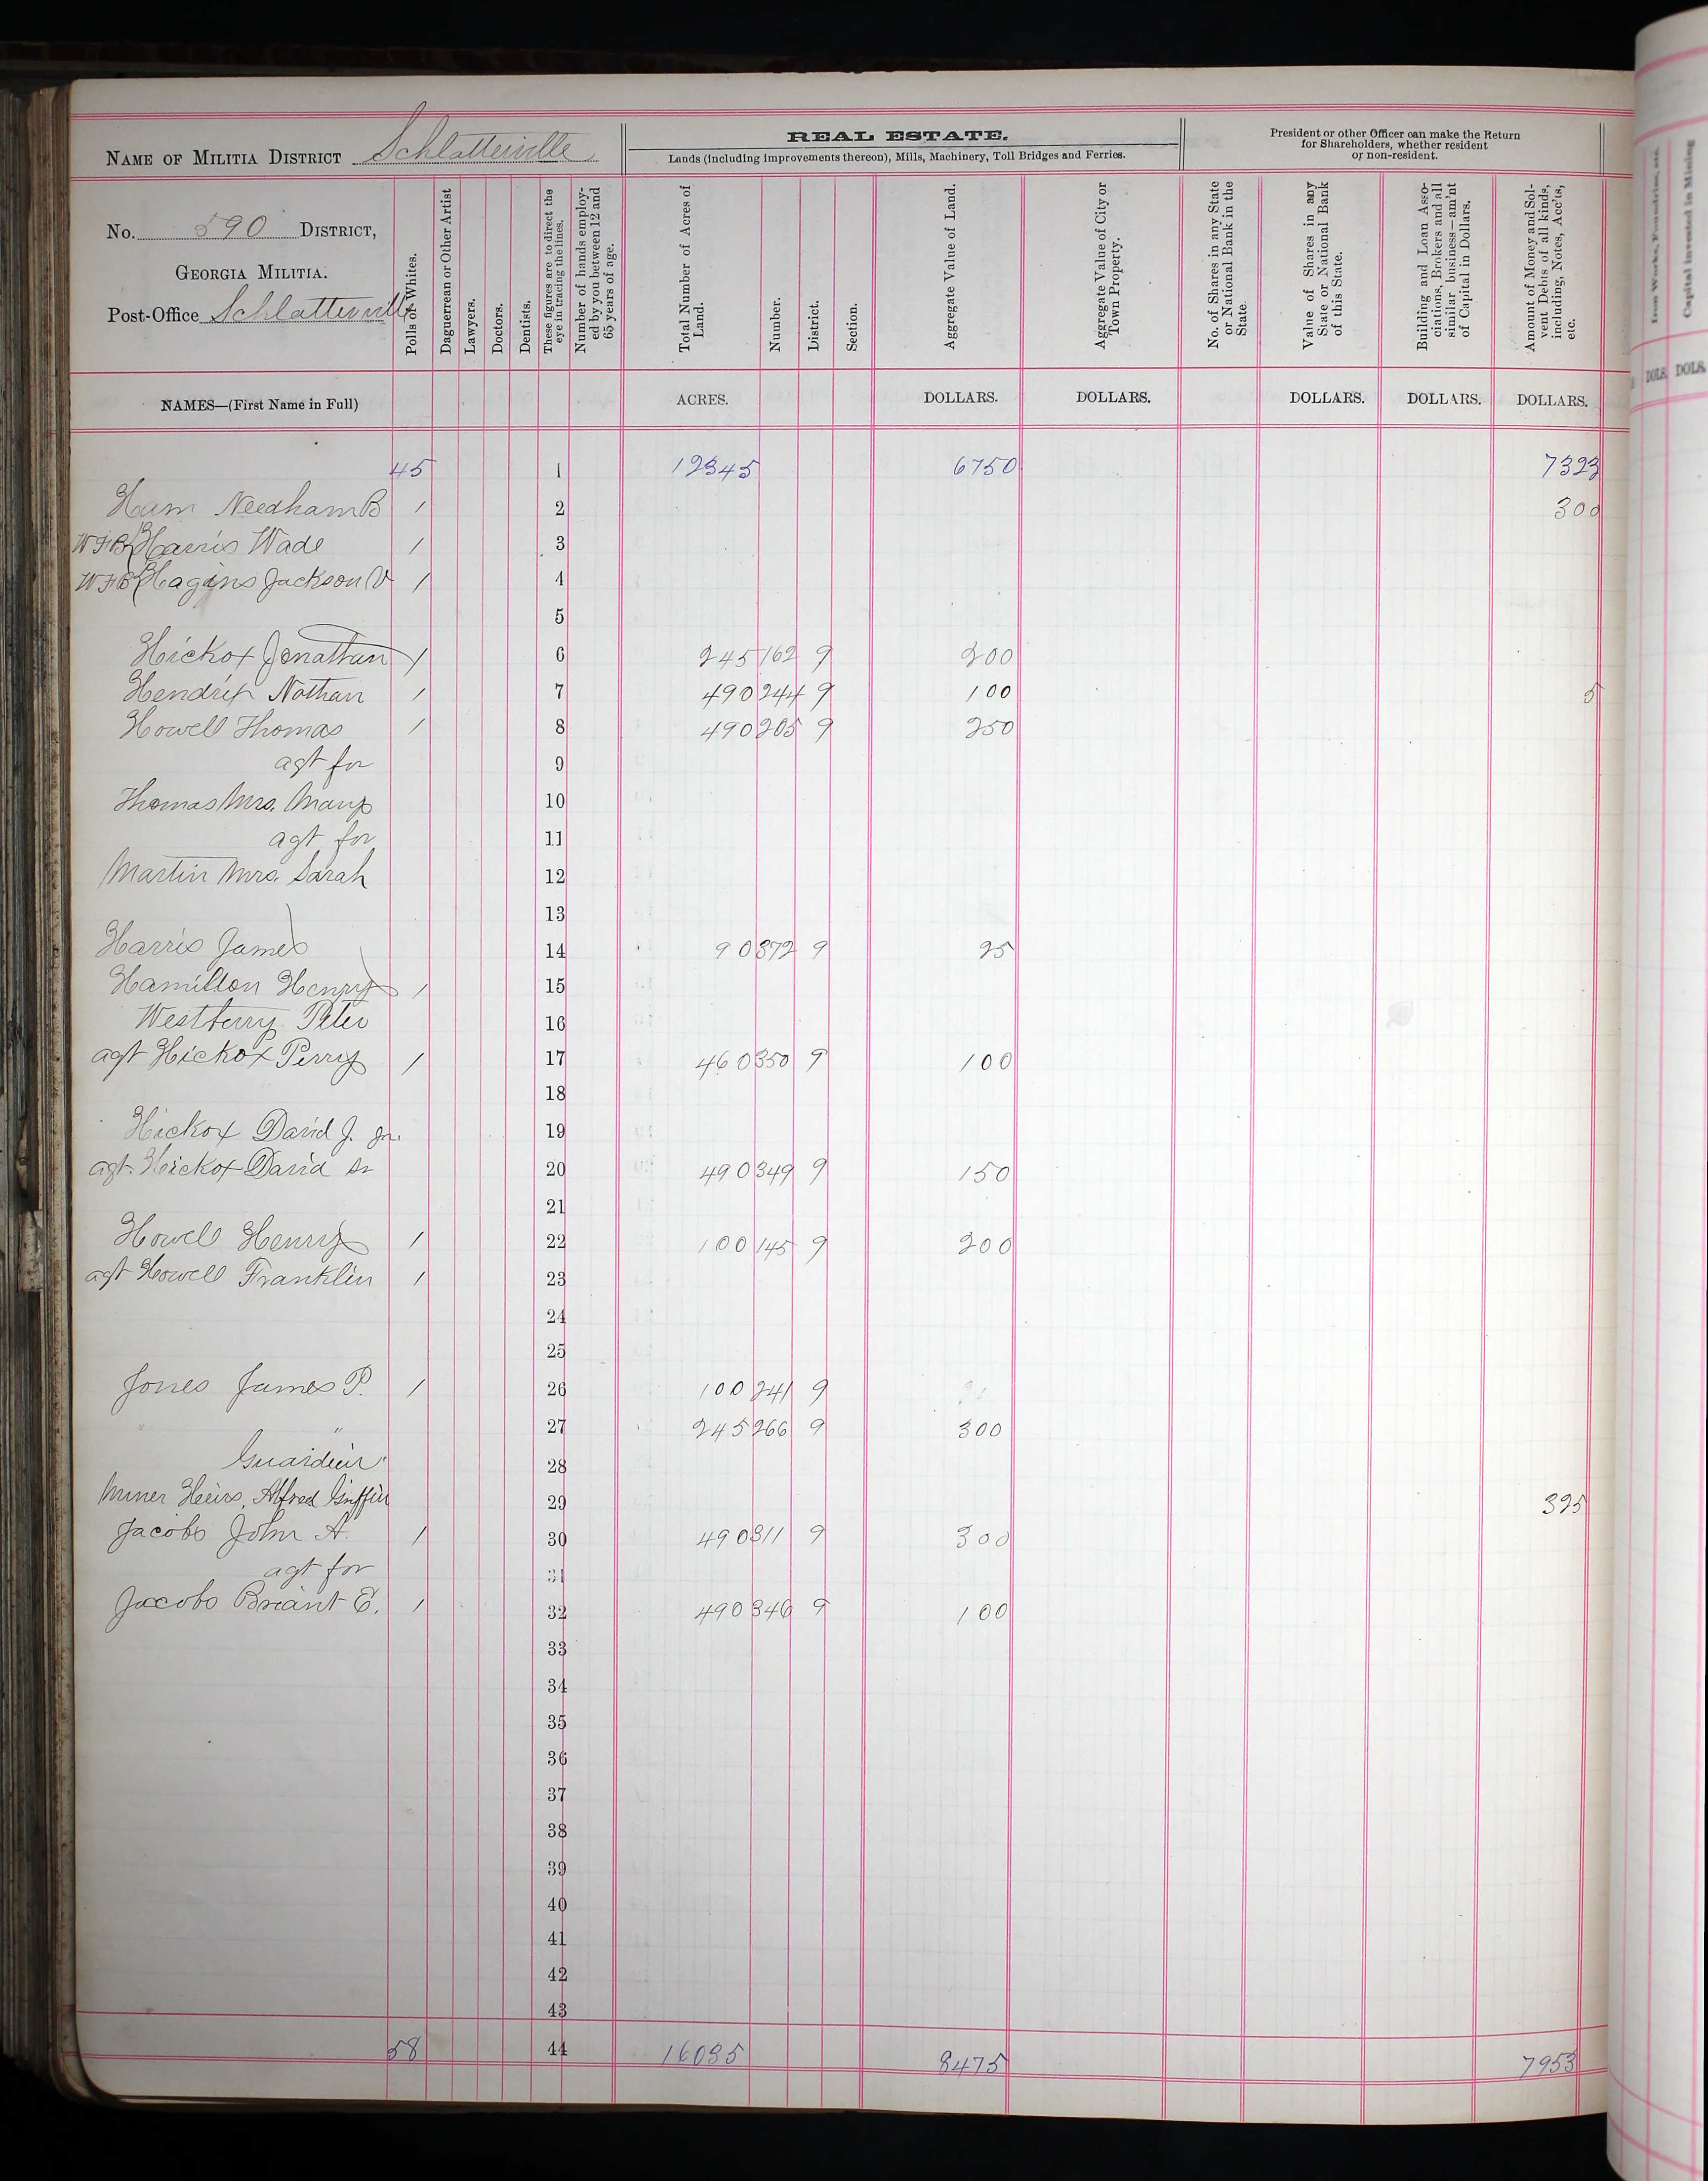 NAME OF MILITIA DISTRICT Schlatterville
No. 590 DISTRICT,
GEORGIA MILITIA.
Post-Office Schlatterville
REAL ESTATE.
Lands (including improvements thereon), Mills, Machinery, Toll Bridges and Ferries.
President or other Officer can make the Return
for Shareholders, whether resident
or non-resident.
Polls of Whites.
Daguerrean or Other Artist
Lawyers.
Doctors.
Dentists.
These figures are to direct the
eye in tracing the lines.
Number of hands employ-
ed by you between 12 and
65 years of age.
Total Number of Acres of
Land.
Number.
District.
Section.
Aggregate Value of Land.
Aggregate Value of City or
Town Property.
No. of Shares in any State
or National Bank in the
State.
Value of Shares in any
State or National Bank
of this State.
Building and Loan Asso-
ciations, Brokers and all
similar business—am'nt
of Capital in Dollars.
Amount of Money and Sol-
vent Debts of all kinds,
including, Notes, Acc'ts,
etc.
Iron Works, Foundries, etc.
Capital invested in Mining
NAMES—(First Name in Full) ACRES. DOLLARS. DOLLARS. DOLLARS. DOLLARS. DOLLARS. DOLS. DOLS.
45 1 12345 6750 7323
Ham Needham B 1 2 300
W F B { Harris Wade 1 3
W F B { Hagins Jackson V 1 4
5
Hickox Jonathan 1 6 245 162 9 200
Hendrix Nathan 1 7 490 244 9 100 5
Howell Thomas 1 8 490 205 9 250
agt for 9
Thomas Mrs. Mary 10
agt for 11
Martin Mrs. Sarah 12
13
Harris James 14 90 372 9 25
Hamilton Henry 1 15
Westberry Peter 16
agt Hickox Perry 1 17 460 350 9 100
18
Hickox David J. Jr. 19
agt. Hickox David Sr 20 490 349 9 150
21
Howell Henry 1 22 100 145 9 200
agt Howell Franklin 1 23
24
25
Jones James P. 1 26 100 241 9
" " 27 245 266 9 300
Guardian 28
Miner Heirs, Alfred Griffin 29 325
Jacobs John A. 1 30 490 311 9 300
agt for 31
Jacobs Briant E. 1 32 490 346 9 100
33
34
35
36
37
38
39
40
41
42
43
58 44 16035 8475 7953